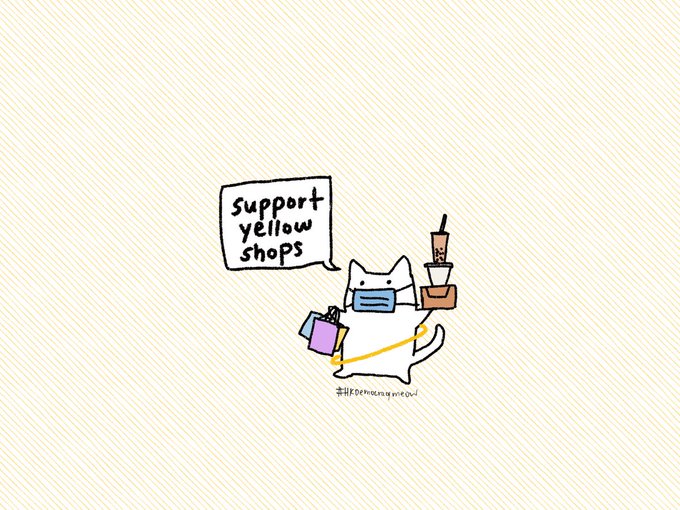 support
yellow
shops
#HKDemocracymeow